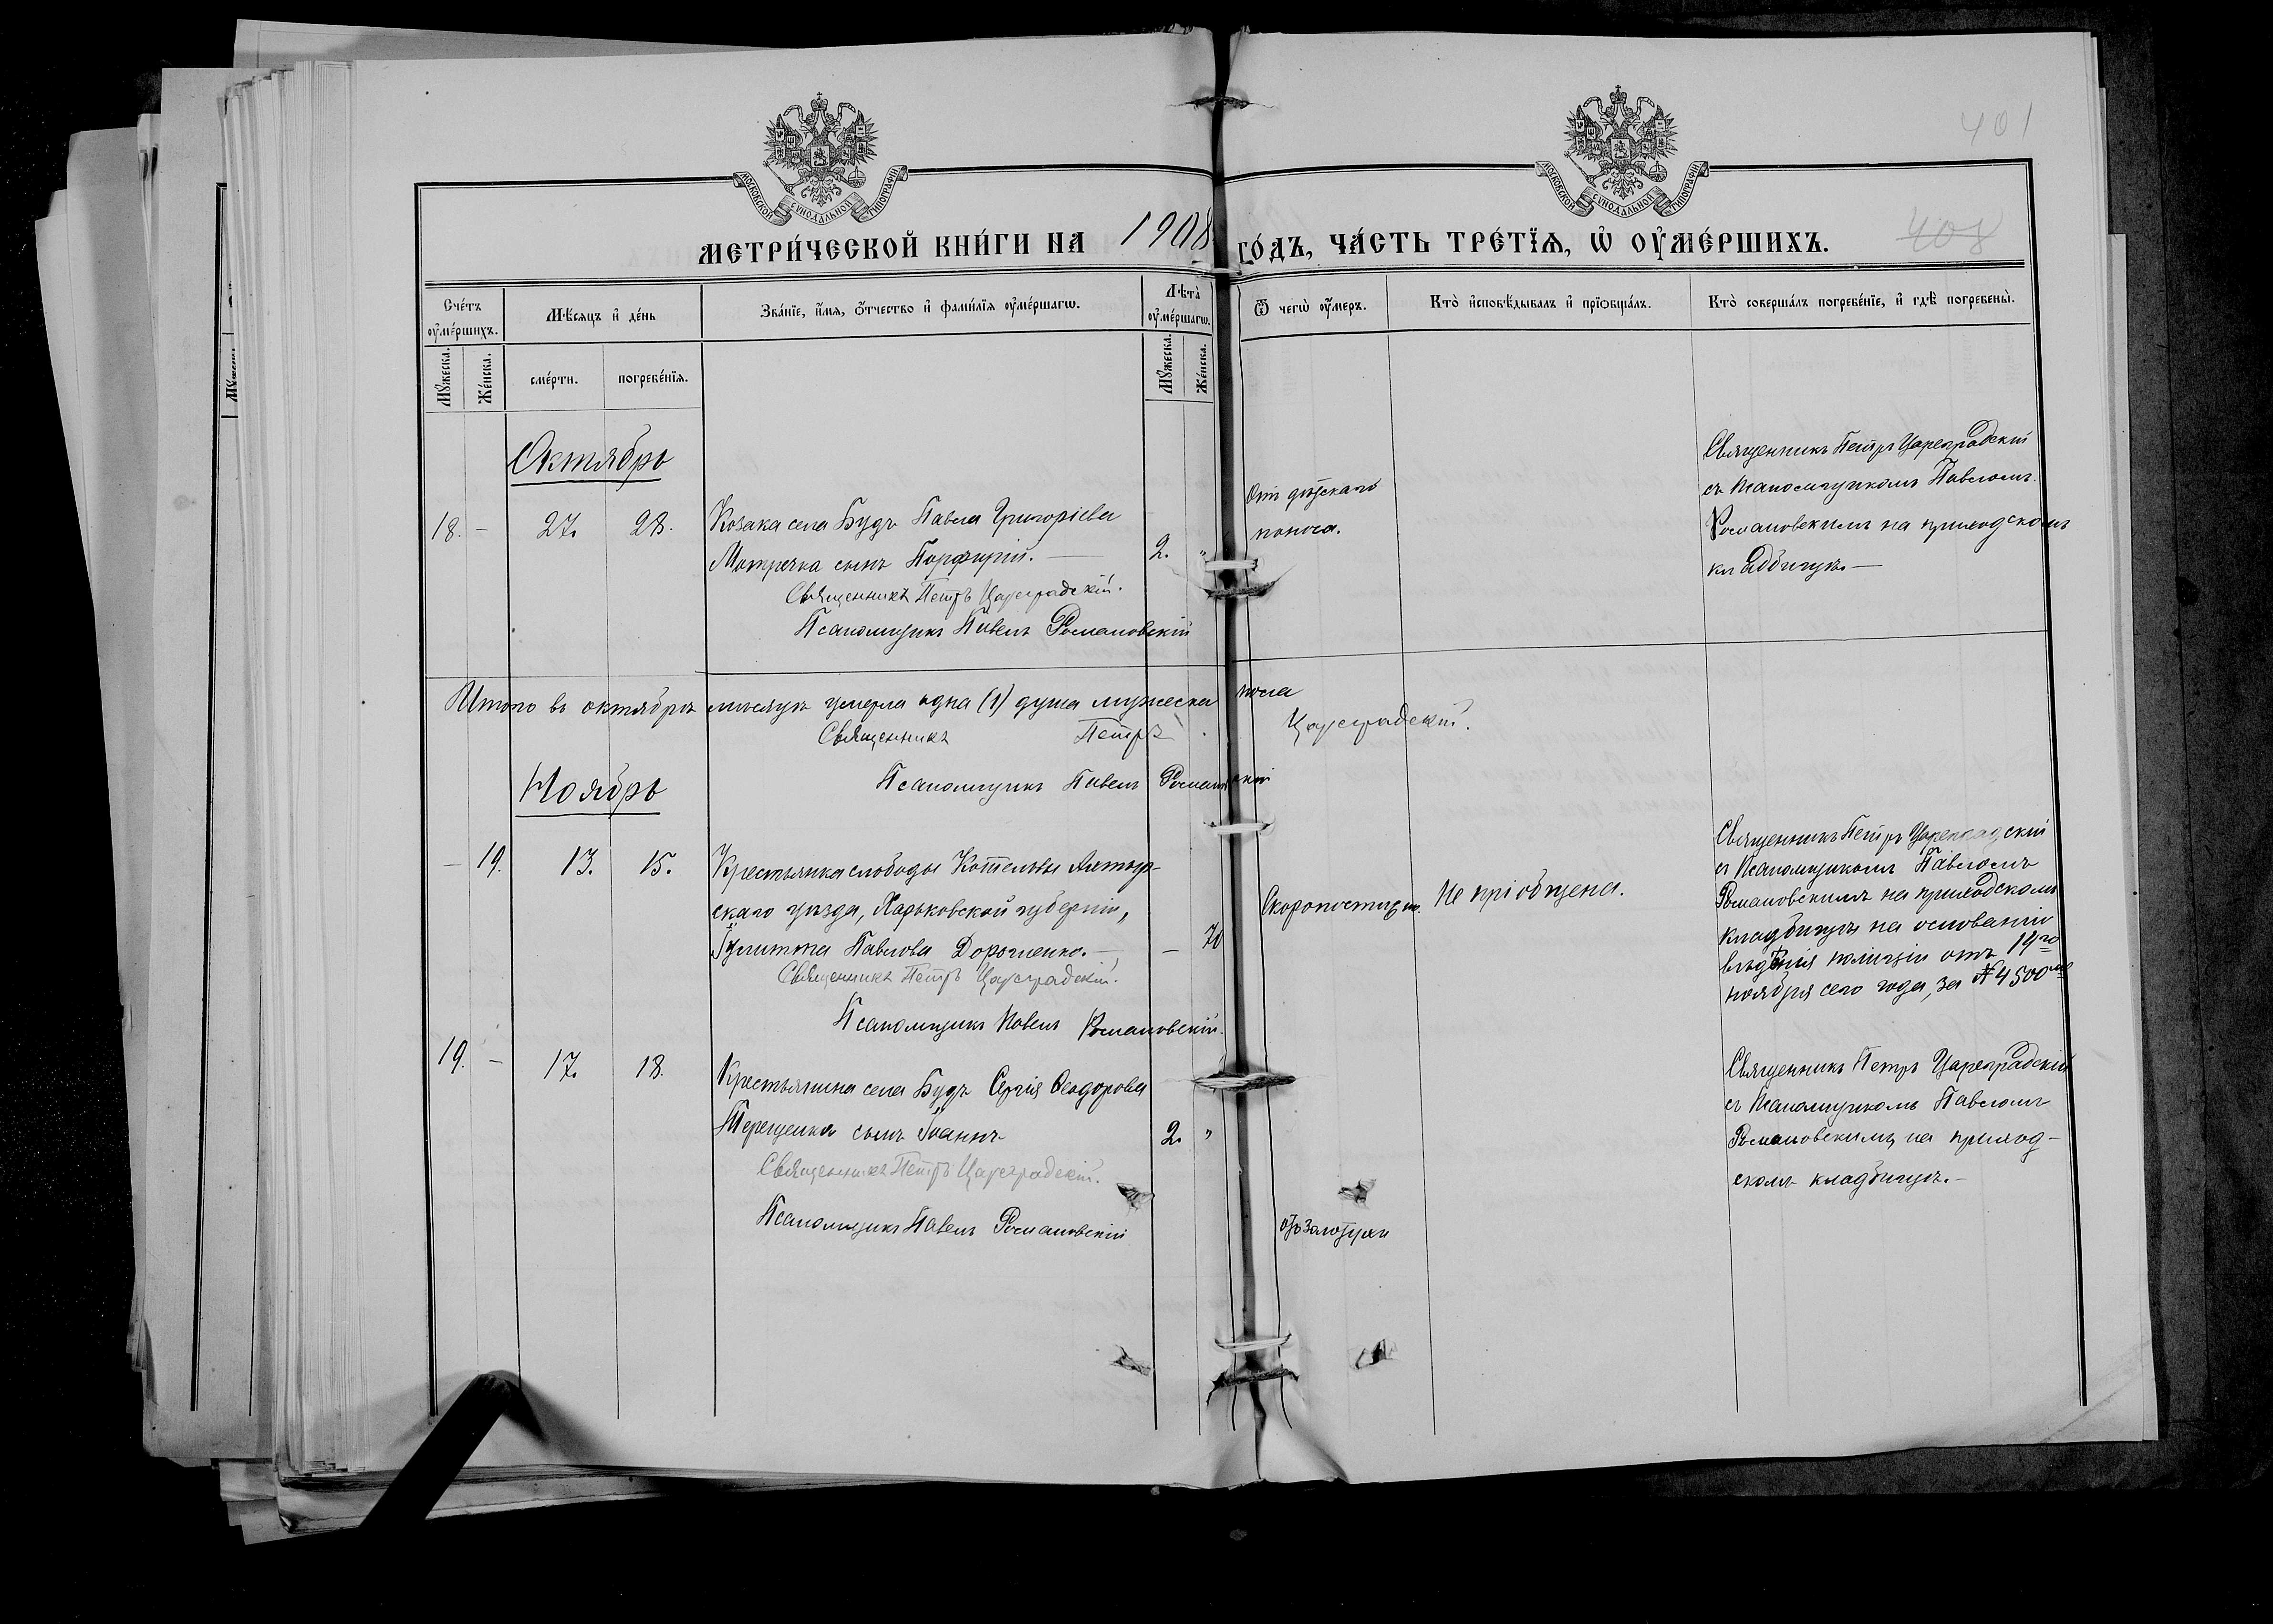 401
МОСКОВСКОЙ СѴНОДАЛЬНОЙ ТИПОГРАФІИ
МОСКОВСКОЙ СѴНОДАЛЬНОЙ ТИПОГРАФІИ
МЕТРИ́ЧЕСКОЙ КНИ́ГИ НА 1908 ГО́ДЪ, ЧА́СТЬ ТРЕ́ТЇѦ, Ѡ҆ ОУ҆МЕ́РШИХЪ.
408
Сче́тъ оу҆ме́ршихъ.
Мѣ́сѧцъ и҆ де́нь
Зва́нїе, и҆́мѧ, ѻ҆́тчество и҆ фами́лїѧ оу҆ме́ршагѡ.
Лѣта̀ оу҆ме́ршагѡ.
Ѿ чегѡ̀ оу҆́меръ.
Кто̀ и҆сповѣ́дывалъ и҆ прїѻбща́лъ.
Кто̀ соверша́лъ погребе́нїе, и҆ гдѣ̀ погребены̀.
Мꙋ́жеска.
Же́нска.
сме́рти.
погребе́нїѧ.
Мꙋ́жеска.
Же́нска.
Октябрь
18. - 27. 28.
Козака села Будъ Павла Григоріева
Мотречка сынъ Порфирій. — 2. "
Священникъ Петръ Цареградскій.
Псаломщикъ Павелъ Романовскій
Отъ дѣтскаго
поноса.
Священникъ Петръ Цареградскій
съ Псаломщикомъ Павломъ
Романовскимъ на приходскомъ
кладбищѣ. —
Итого въ октябрѣ мѣсяцѣ умерла одна (1) душа мужеска пола
Священникъ Петръ Цареградскій.
Псаломщикъ Павелъ Романовскій
Ноябрь
- 19. 13. 15.
Крестьянка слободы Котельвы Ахтыр-
скаго уѣзда, Харьковской губерніи,
Іулитта Павлова Дорошенко. — - 70
Священникъ Петръ Цареградскій.
Псаломщикъ Павелъ Романовскій.
Скоропостижно.
Не пріобщена.
Священникъ Петръ Цареградскій
съ Псаломщикомъ Павломъ
Романовскимъ на приходскомъ
кладбищѣ на основаніи
вѣдѣнія полиціи отъ 14го
ноября сего года, за № 4500мъ
19. - 17. 18.
Крестьянина села Будъ Сергія Ѳеодорова
Терещенка сынъ Іоаннъ 2. "
Священникъ Петръ Цареградскій.
Псаломщикъ Павелъ Романовскій
отъ золотухи
Священникъ Петръ Цареградскій
съ Псаломщикомъ Павломъ
Романовскимъ на приход-
скомъ кладбищѣ. —